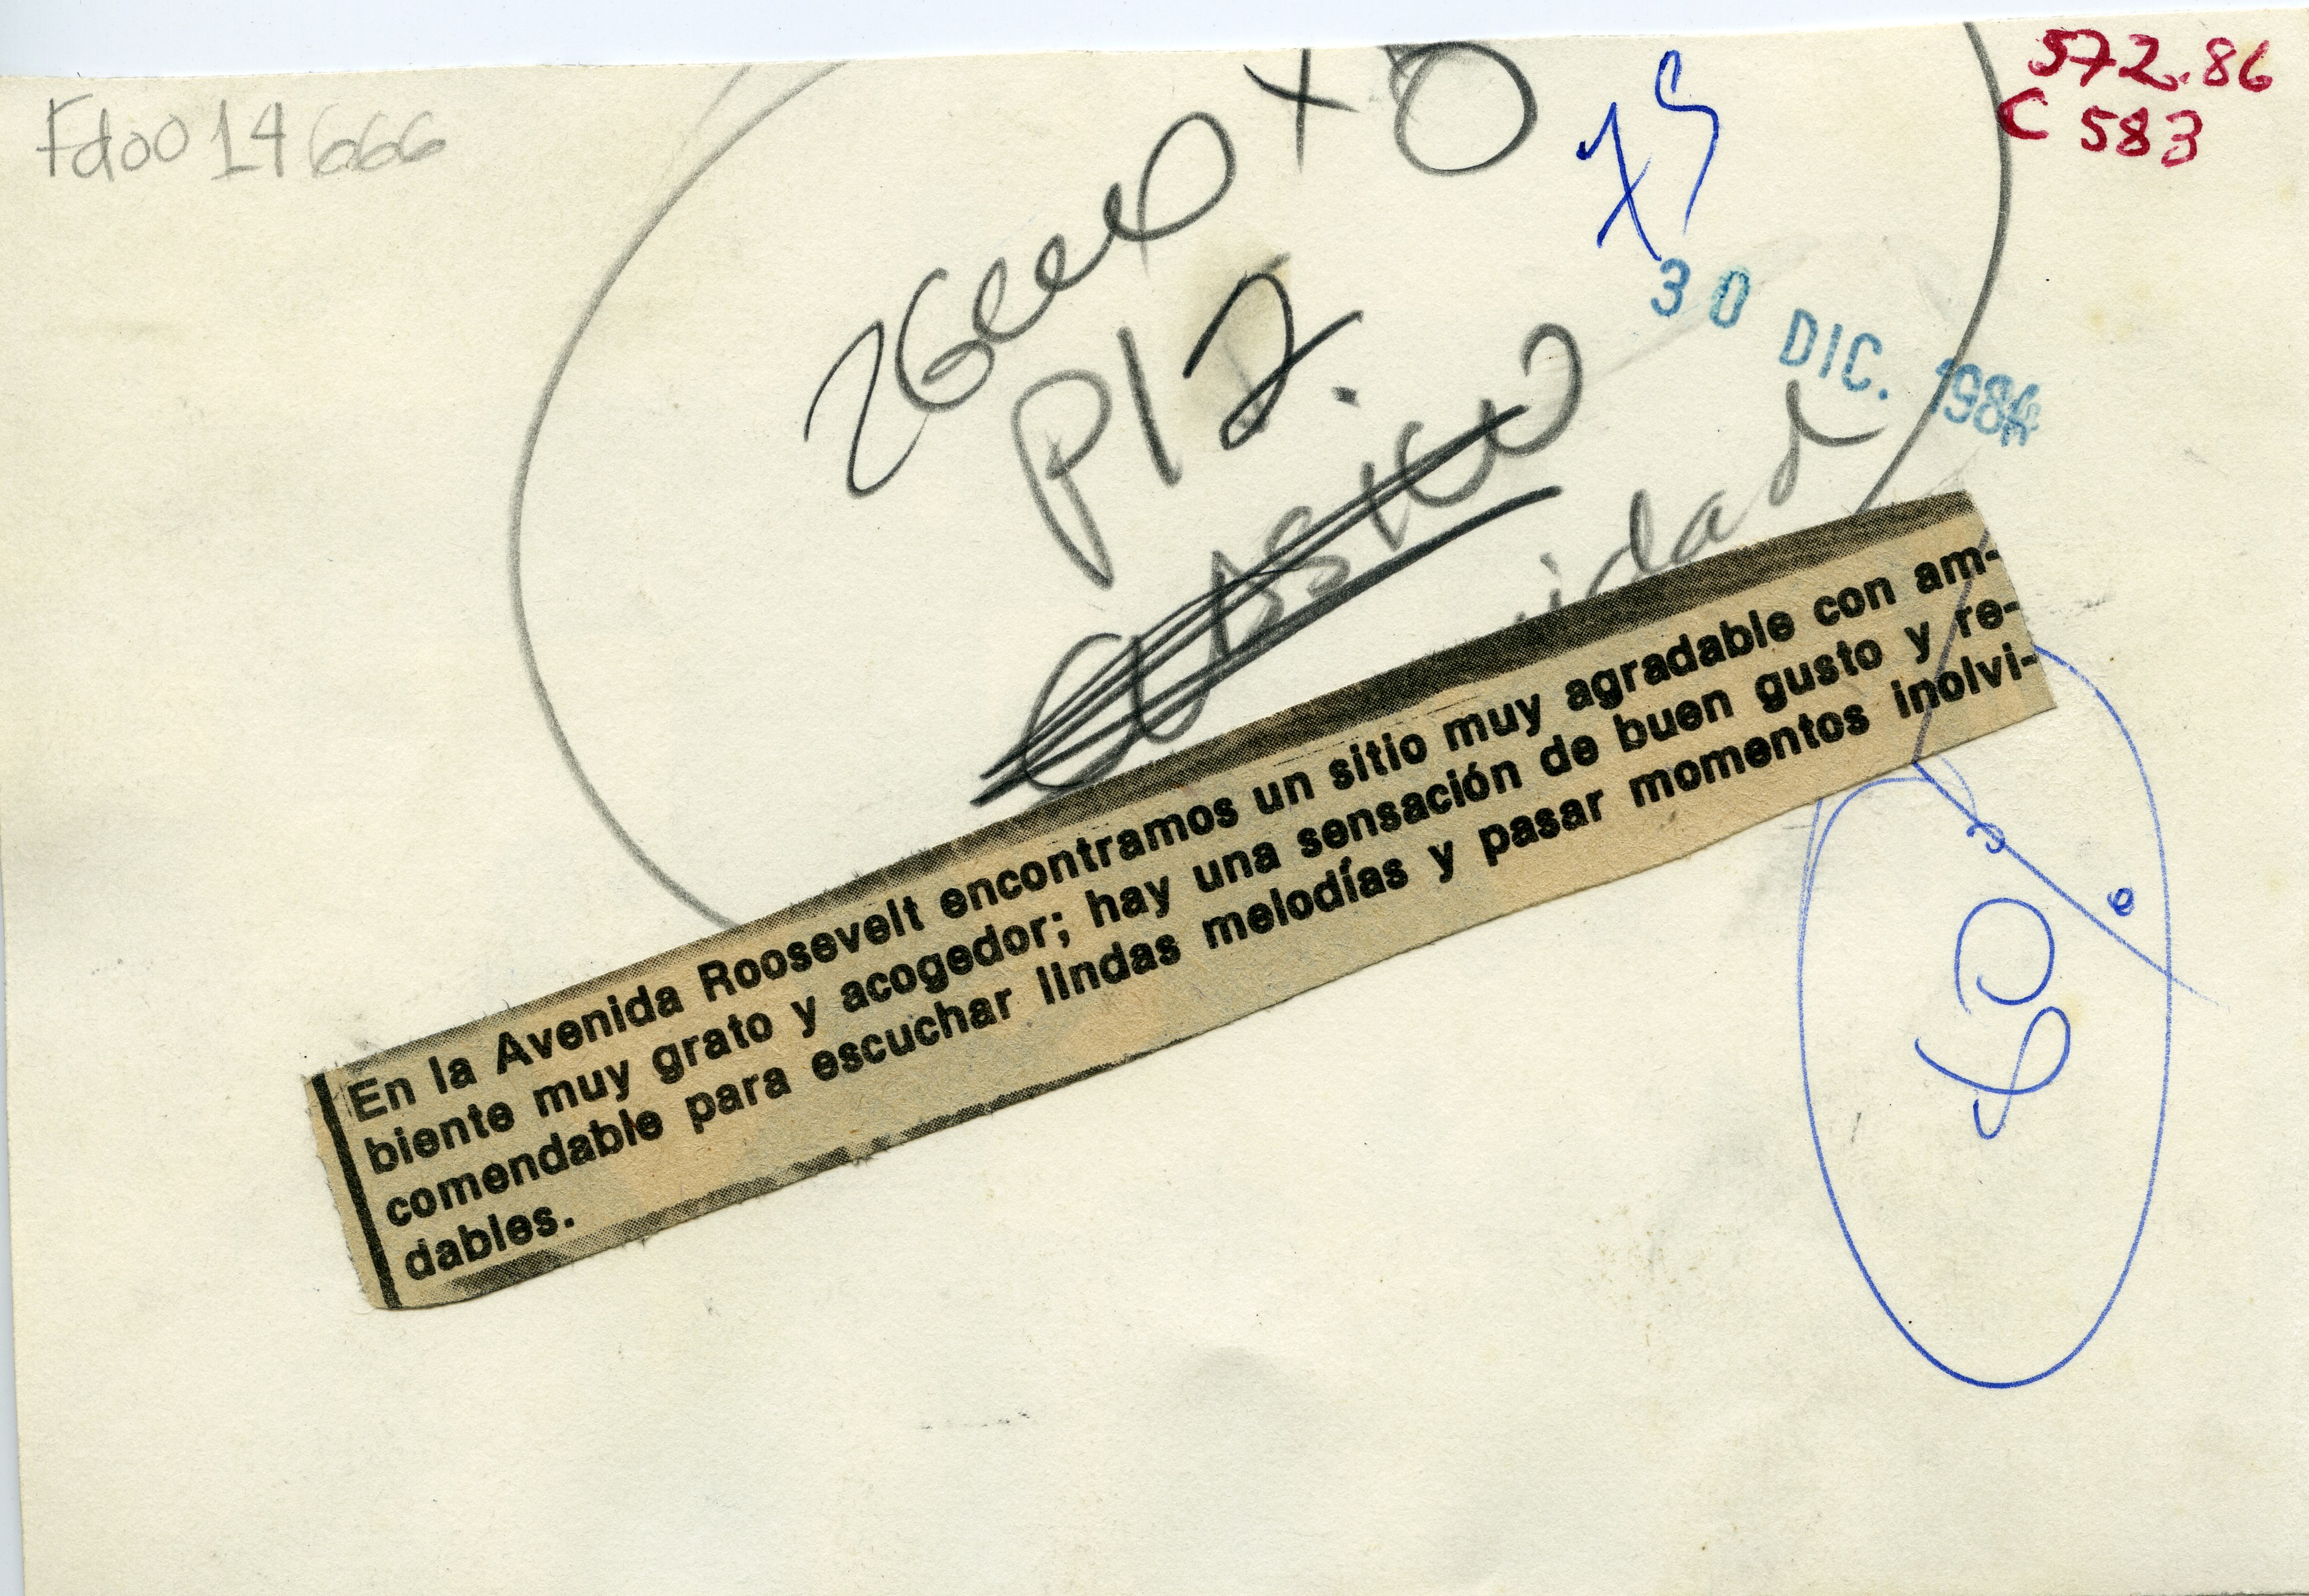 Fdo014666
572.86
C 583
x5
30 DIC. 198
P12.
CLASICO
idad
En la Avenida Roosevelt encontramos un sitio muy agradable con am-
biente muy grato y acogedor; hay una sensación de buen gusto y re-
comendable para escuchar lindas melodías y pasar momentos inolvi-
dables.